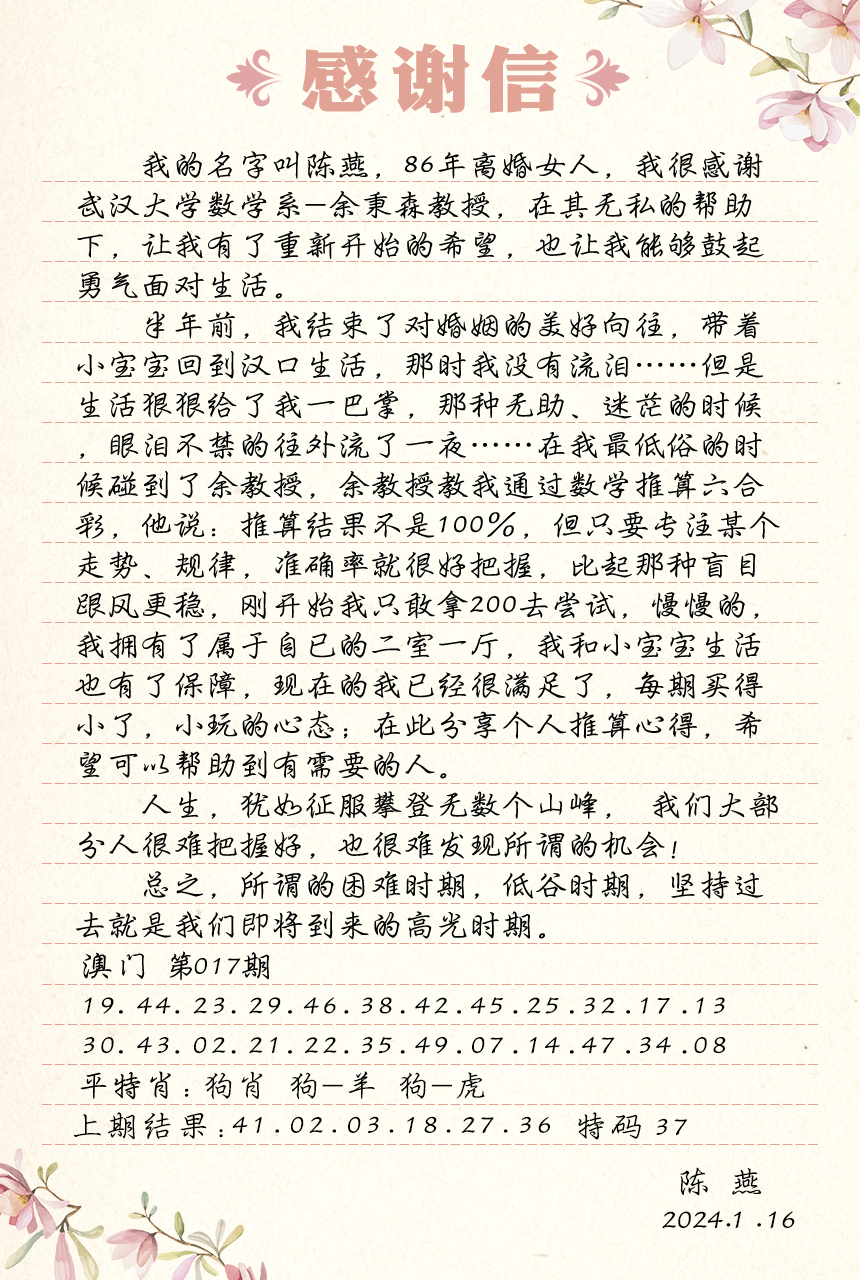 感谢信
我的名字叫陈燕，86年离婚女人，我很感谢
武汉大学数学系—余秉森教授，在其无私的帮助
下，让我有了重新开始的希望，也让我能够鼓起
勇气面对生活。
半年前，我结束了对婚姻的美好向往，带着
小宝宝回到汉口生活，那时我没有流泪……但是
生活狠狠给了我一巴掌，那种无助、迷茫的时候
，眼泪不禁的往外流了一夜……在我最低俗的时
候碰到了余教授，余教授教我通过数学推算六合
彩，他说：推算结果不是100%，但只要专注某个
走势、规律，准确率就很好把握，比起那种盲目
跟风更稳，刚开始我只敢拿200去尝试，慢慢的，
我拥有了属于自已的二室一厅，我和小宝宝生活
也有了保障，现在的我已经很满足了，每期买得
小了，小玩的心态；在此分享个人推算心得，希
望可以帮助到有需要的人。
人生，犹如征服攀登无数个山峰， 我们大部
分人很难把握好，也很难发现所谓的机会！
总之，所谓的困难时期，低谷时期，坚持过
去就是我们即将到来的高光时期。
澳门 第017期
19.44.23.29.46.38.42.45.25.32.17.13
30.43.02.21.22.35.49.07.14.47.34.08
平特肖：狗肖 狗—羊 狗—虎
上期结果：41.02.03.18.27.36 特码 37
陈 燕
2024.1.16